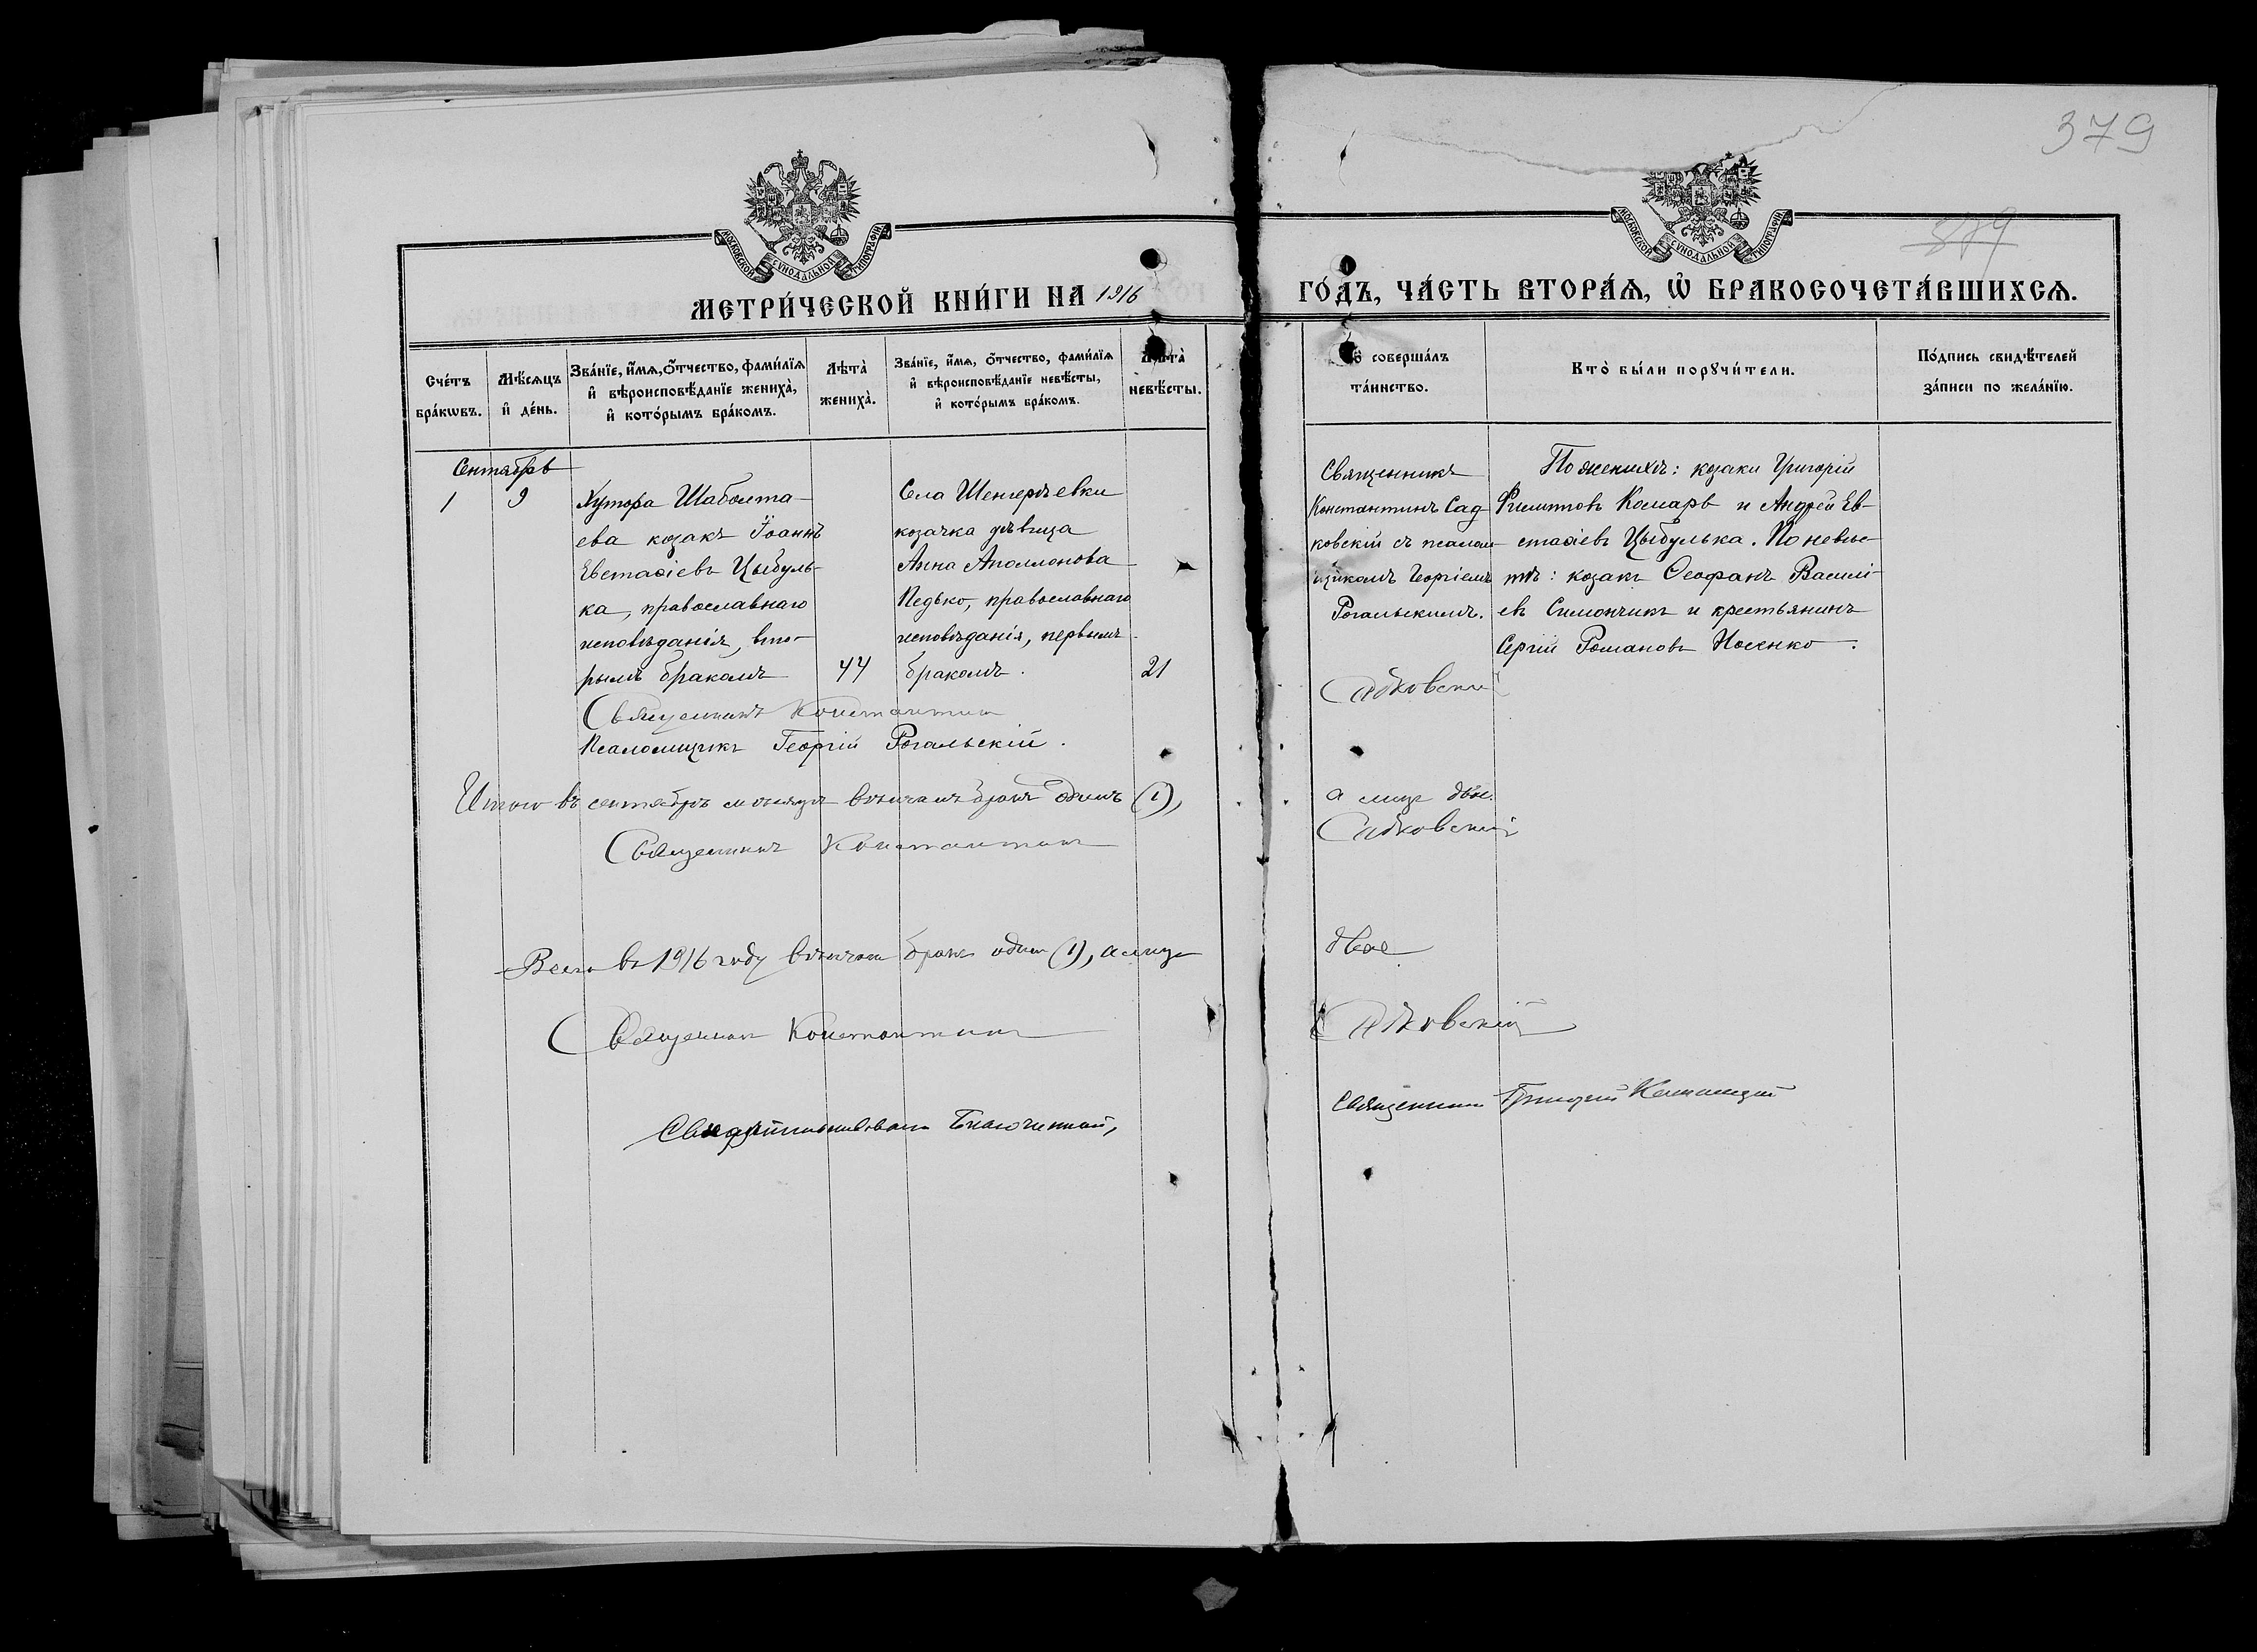 379
379
МОСКОВСКОЙ СѴНОДАЛЬНОЙ ТИПОГРАФІИ
МОСКОВСКОЙ СѴНОДАЛЬНОЙ ТИПОГРАФІИ
МЕТРИ́ЧЕСКОЙ КНИ́ГИ НА 1916
ГО́ДЪ, ЧА́СТЬ ВТОРА́Ѧ, Ѽ БРАКОСОЧЕТА́ВШИХСѦ.
Сче́тъ
бра́кѡвъ.
Мѣ́сѧцъ
и҆ де́нь.
Зва́нїе, и҆́мѧ, ѻ҆́тчество, фами́лїѧ
и҆ вѣроисповѣ́данїе жениха̀,
и҆ кото́рымъ бра́комъ.
Лѣ́та̀
жениха̀.
Зва́нїе, и҆́мѧ, ѻ҆́тчество, фами́лїѧ
и҆ вѣроисповѣ́данїе невѣ́сты,
и҆ кото́рымъ бра́комъ.
невѣ́сты.
соверша́лъ
та́инство.
Кто̀ бы́ли порꙋчи́тели.
По́дпись свидѣ́телей
за́писи по жела́нїю.
Сентябрь
1 9
Хутора Шабалта-
ева козакъ Іоаннъ
Евстаѳіевъ Цыбуль-
ка, православнаго
исповѣданія, вто-
рымъ бракомъ 44
Села Шенгерѣевки
козачка дѣвица
Анна Аполлонова
Педько, православнаго
исповѣданія, первымъ
бракомъ. 21
Священникъ
Константинъ Сад
ковскій съ псалом
щикомъ Георгіемъ
Рогальскимъ.
По женихѣ: козаки Григорій
Филиповъ Комаръ и Андрей Ев-
стаѳіевъ Цыбулька. По невѣс-
тѣ: козакъ Ѳеофанъ Василі-
евъ Симончикъ и крестьянинъ
Сергій Романовъ Носенко.
Священникъ Константинъ Садковскій
Псаломщикъ Георгій Рогальскій.
Итого въ сентябрѣ мѣсяцѣ вѣнчанъ бракъ одинъ (1), а лицъ двое.
Священникъ Константинъ Садковскій
Всего въ 1916 году вѣнчанъ бракъ одинъ (1), а лицъ двое
Священникъ Константинъ Садковскій
Свидѣтельствовалъ Благочинный, священникъ Григорій